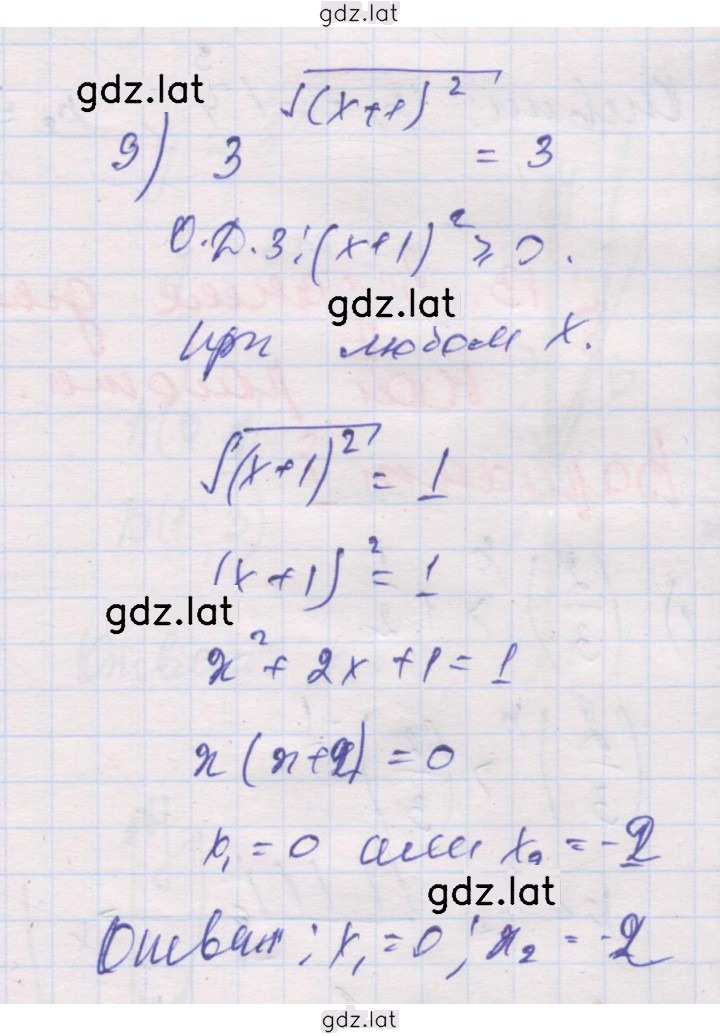 gdz.lat
gdz.lat
9) 3^√(x+1)² = 3
О.Д.З: (x+1)² ≥ 0.
gdz.lat
при любом x.
√(x+1)² = 1
(x+1)² = 1
gdz.lat
x² + 2x + 1 = 1
x(x+2) = 0
x₁ = 0 или x₂ = -2
gdz.lat
Ответ: x₁ = 0; x₂ = -2
gdz.lat